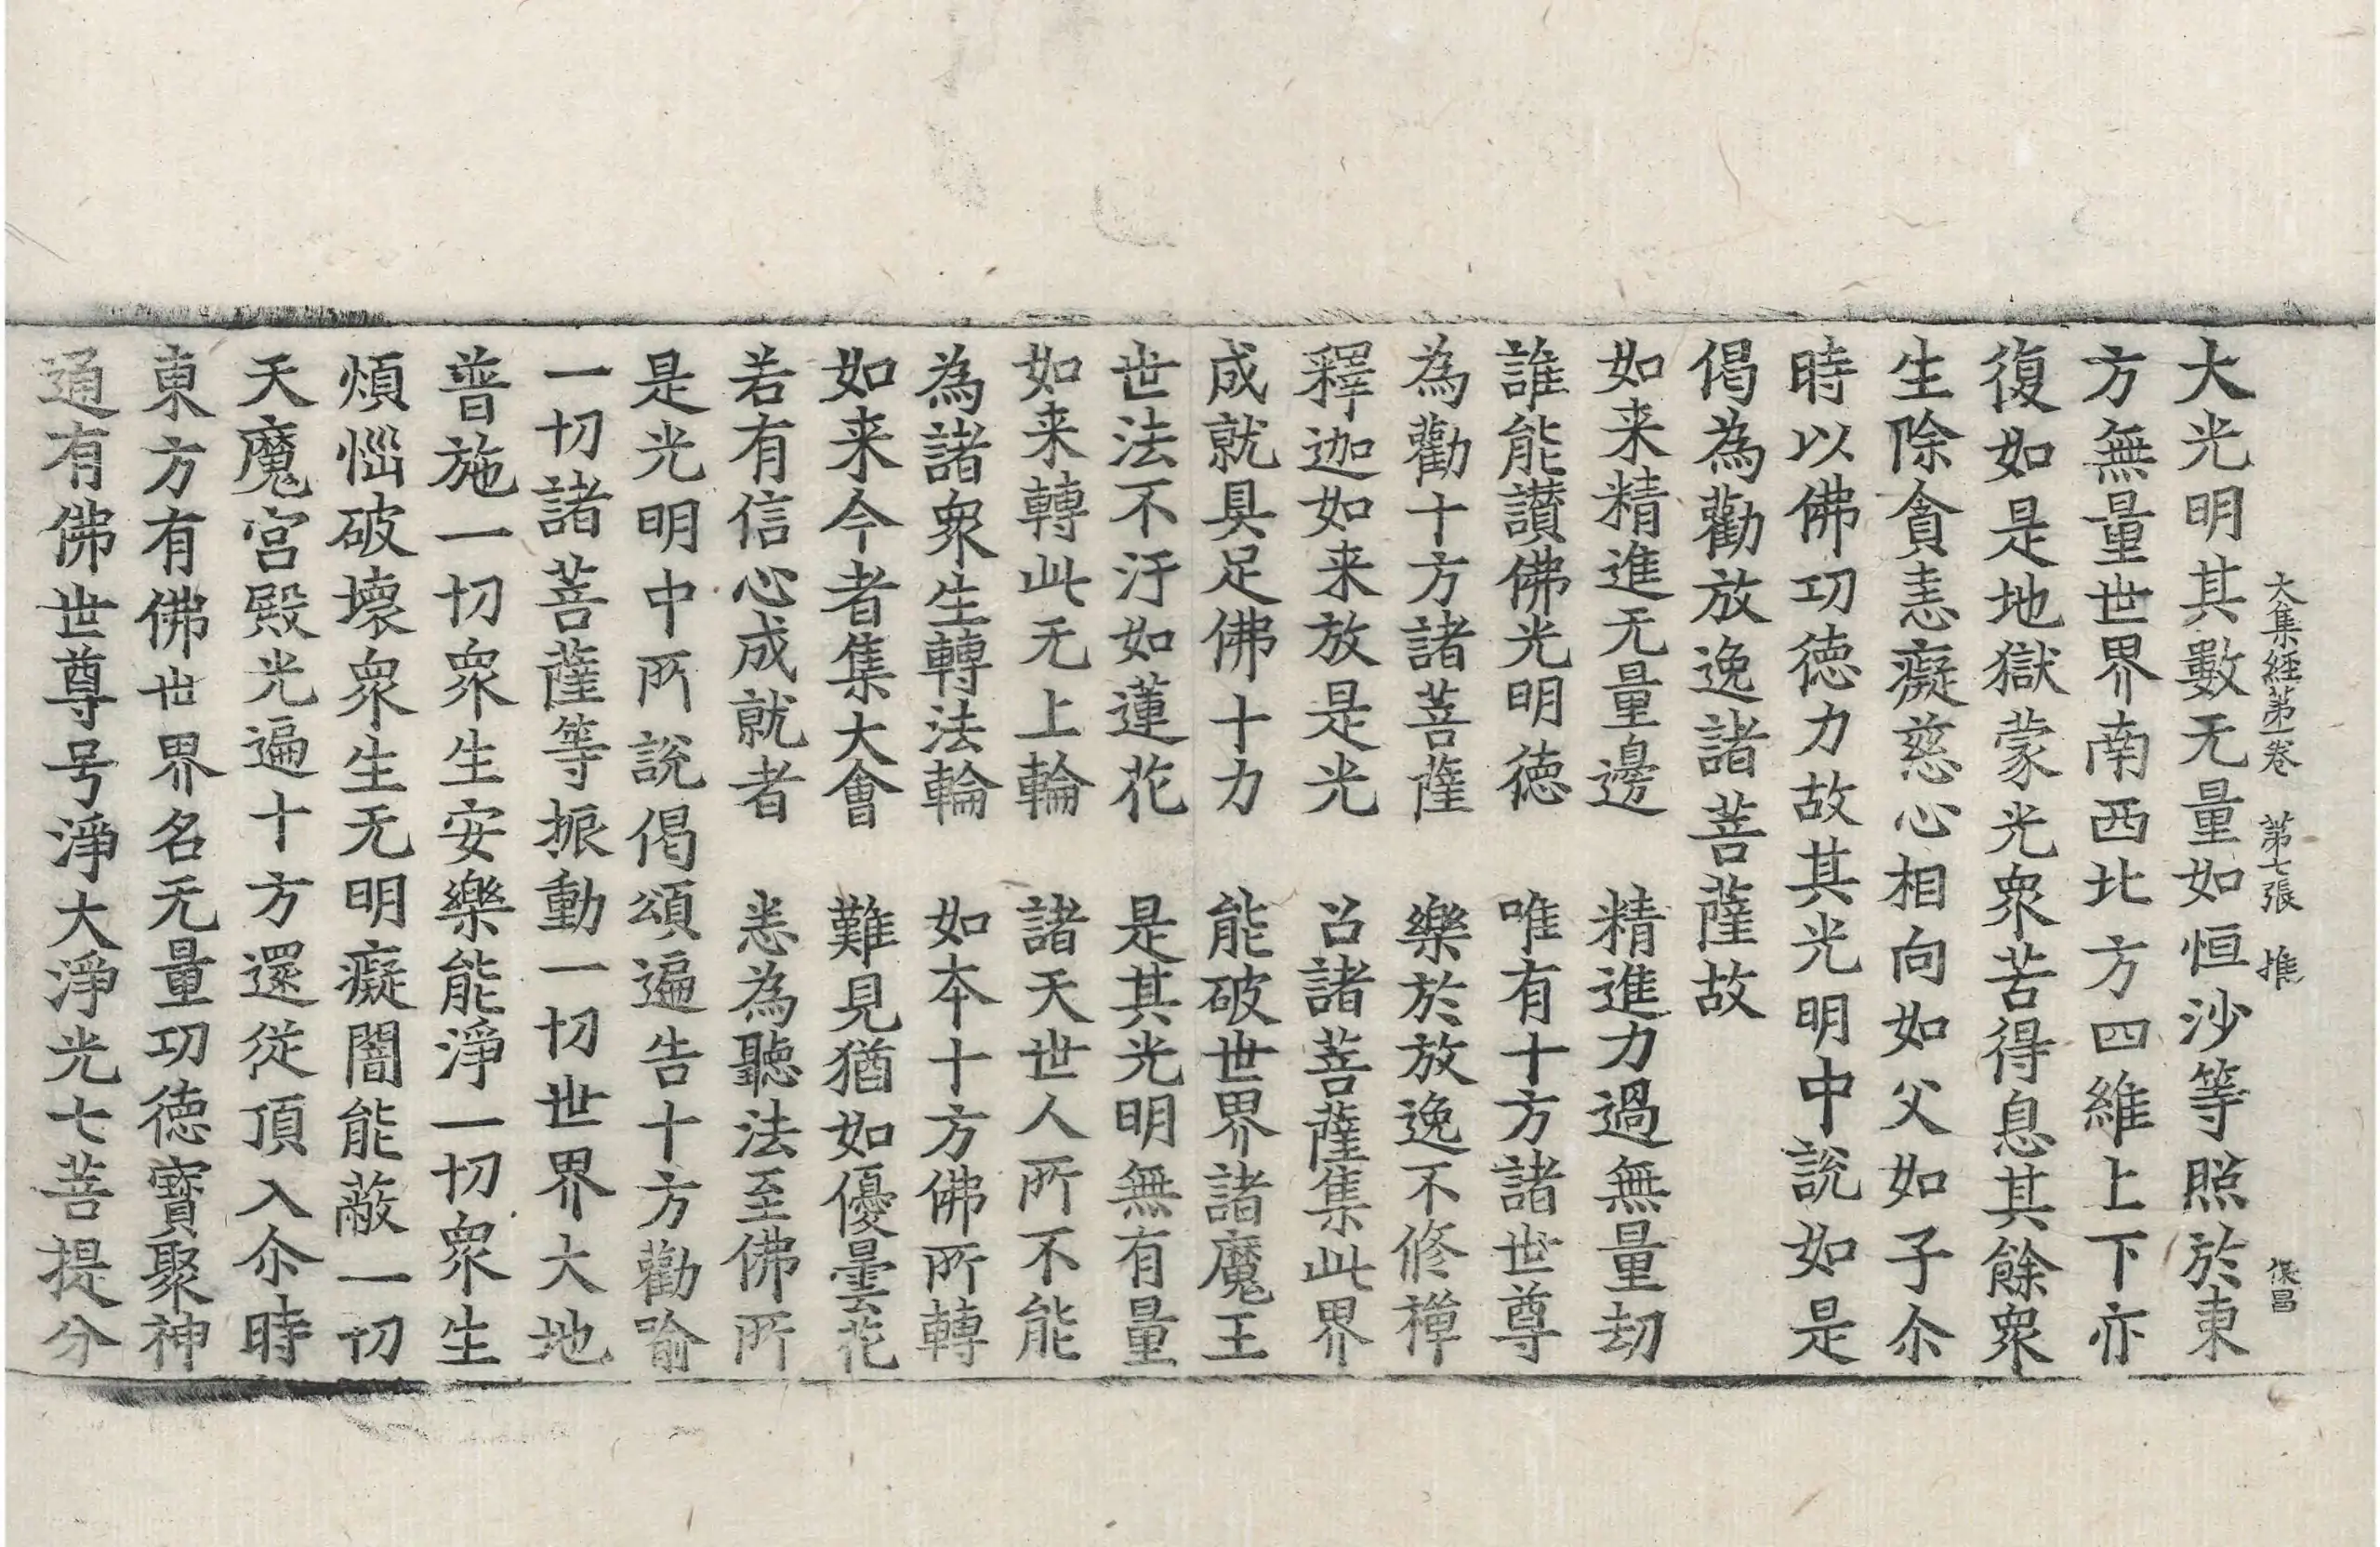 大集経苐一卷　苐七張　推
大光明其數无量如恒沙等照於東
方無量世界南西北方四維上下亦
復如是地獄蒙光衆苦得息其餘衆
生除貪恚癡慈心相向如父如子尒
時以佛功德力故其光明中說如是
偈為勸放逸諸菩薩故
如来精進无量邊　精進力過無量劫
誰能讃佛光明德　唯有十方諸世尊
為勸十方諸菩薩　樂於放逸不修禅
釋迦如来放是光　召諸菩薩集此界
成就具足佛十力　能破世界諸魔王
世法不汙如蓮花　是其光明無有量
如来轉此无上輪　諸天世人所不能
為諸衆生轉法輪　如本十方佛所轉
如来今者集大會　難見猶如優曇花
若有信心成就者　恙為聽法至佛所
是光明中所說偈頌遍告十方勸喻
一切諸菩薩等振動一切世界大地
普施一切衆生安樂能淨一切衆生
煩惱破壞衆生无明癡闇能蔽一切
天魔宮殿光遍十方還從頂入尒時
東方有佛世界名无量功德寳聚神
通有佛世尊号淨大淨光七菩提分